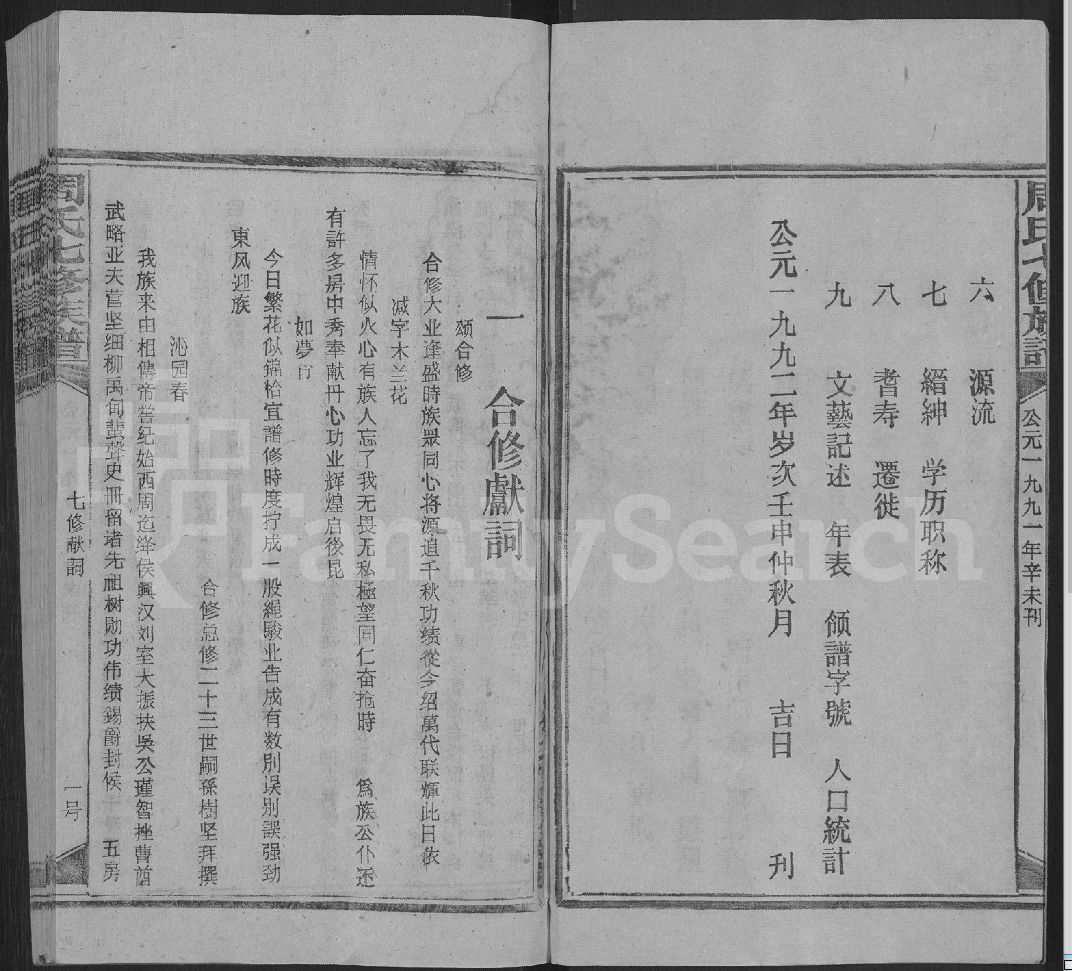 公元一九九一年辛未刊
六 源流
七 縉紳 学历职称
八 耆寿 遷徙
九 文藝記述 年表 领譜字號 人口統計
公元一九九二年岁次壬申仲秋月 吉日 刊
一 合修獻詞
颂合修
合修大业逢盛時族眾同心将源追千秋功绩從今绍萬代联輝此日依
减字木兰花
情怀似火心有族人忘了我无畏无私極望同仁奋抢時 爲族公仆还
有許多房中秀奉献丹心功业辉煌启後昆
如夢
今日繁花似錦恰宜譜修時度拧成一股繩駿业告成有数別误別誤强劲
东风迎族
合修总修二十三世嗣孫樹坚拜撰
沁园春
我族来由相傳帝嚳纪始西周迄绛侯興汉刘室大振扶吳公瑾智挫曹酋
武略亚夫营坚细柳禹甸蜚聲史册留诸先祖树勋功伟绩錫爵封侯 五房
周氏七修族譜
七修献詞
一号
FamilySearch